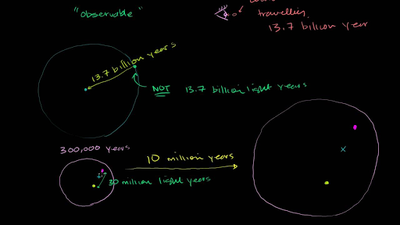 "observable"
travelling
13.7 billion year
13.7 billion years
NOT 13.7 billion light years
300,000 years
10 million years
30 million light years